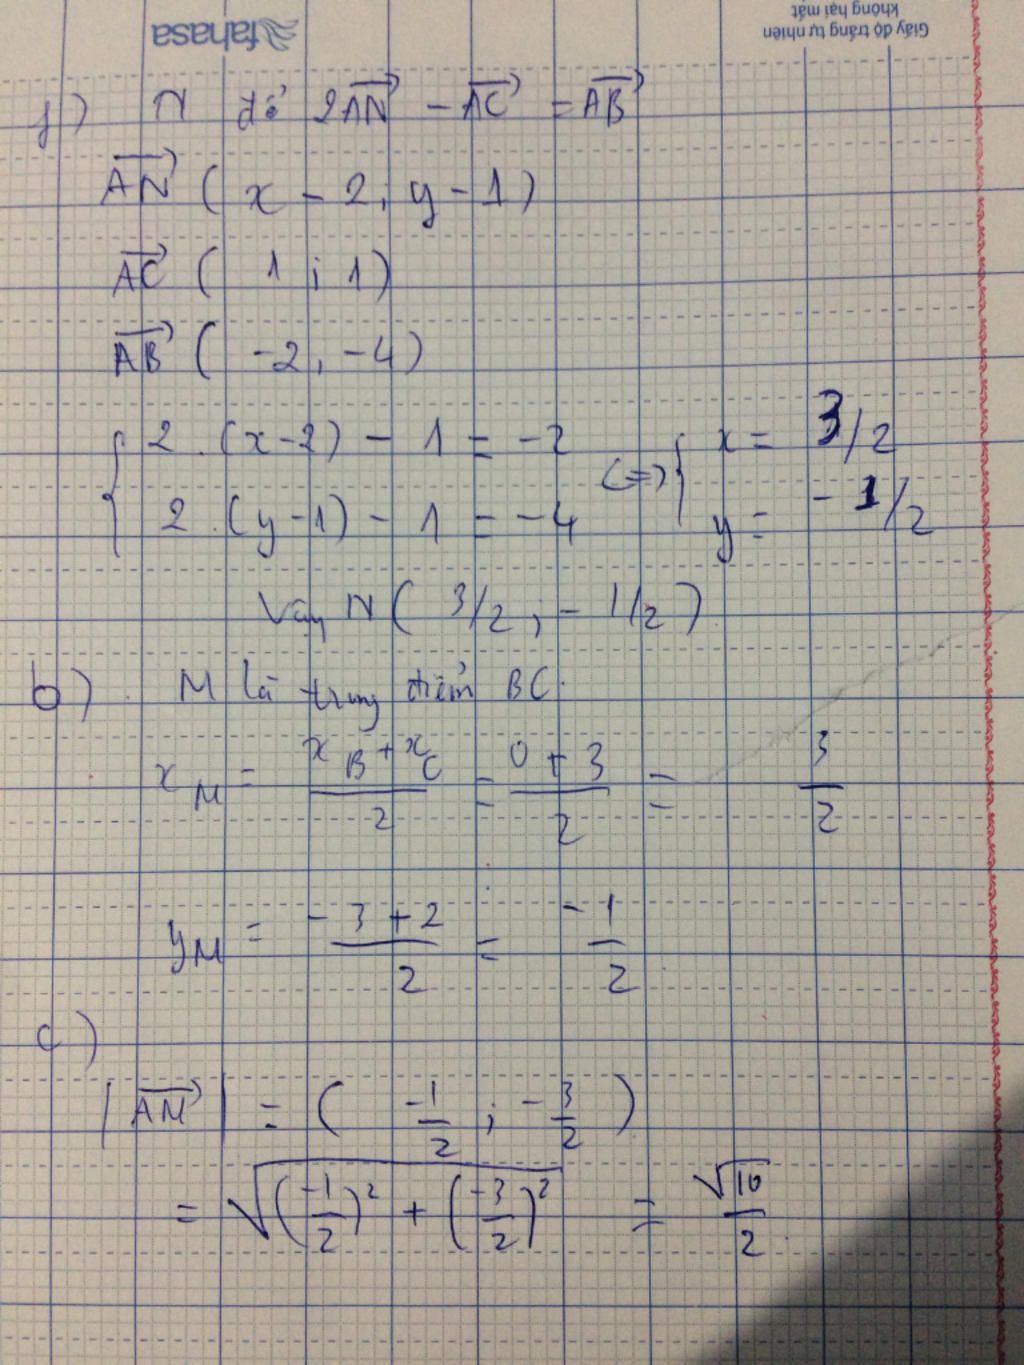 fahasa
Giấy độ trắng tự nhiên
không hại mắt
f) N để 2AN→ - AC→ = AB→
AN→ ( x - 2 ; y - 1 )
AC→ ( 1 ; 1 )
AB→ ( -2 , -4 )
{ 2 . (x-2) - 1 = -2 <=> { x = 3/2
2 . (y-1) - 1 = -4 y = -1/2
Vậy N ( 3/2 ; - 1/2 )
b) M là trung điểm BC.
x_M = (x_B + x_C)/2 = (0 + 3)/2 = 3/2
y_M = (-3 + 2)/2 = -1/2
c)
|AM→| = ( -1/2 ; -3/2 )
= √((-1/2)² + (-3/2)²) = √10/2